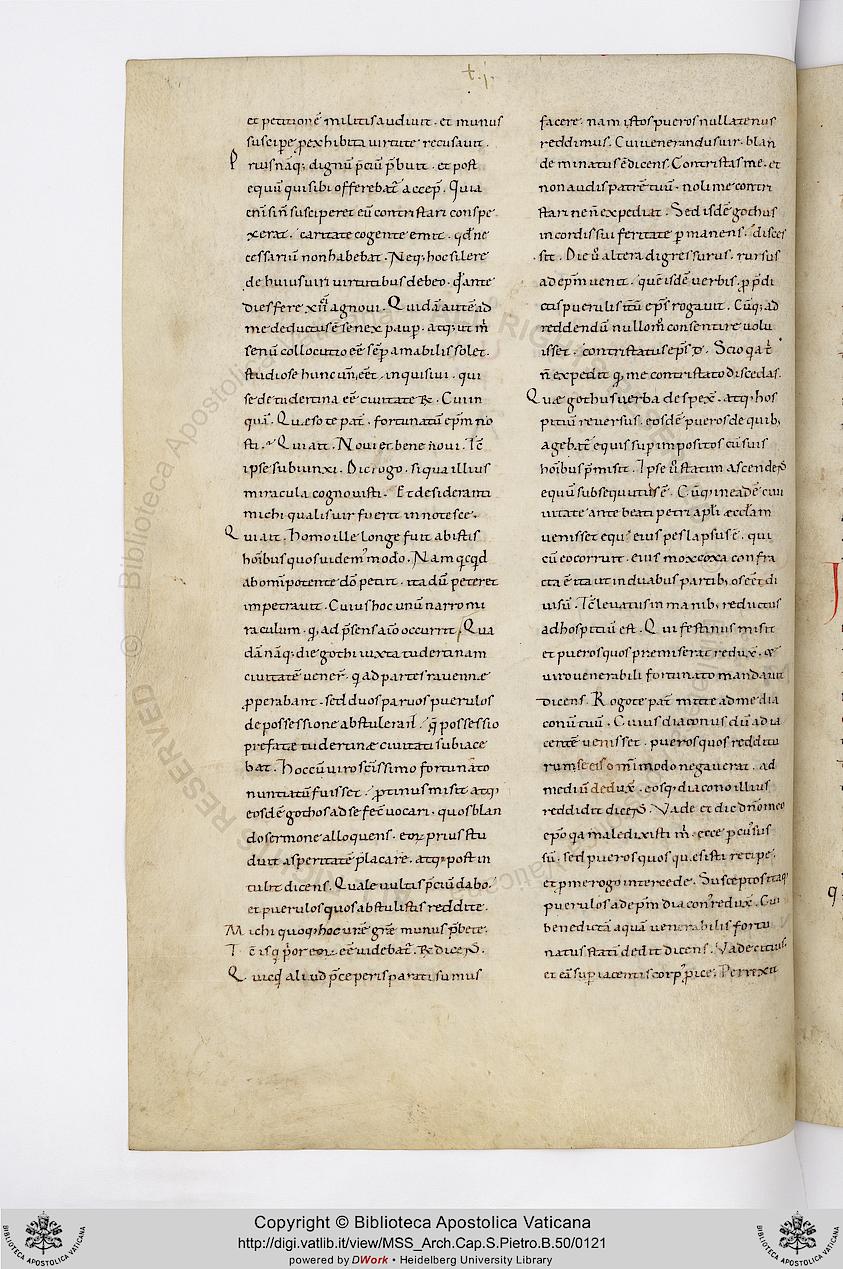 et petitionē militis audivit. et munus
suscipe p̱ exhibita virtute recusavit.
Prius nāq; dignū p̄ciū p̄buit. et post
equū qui sibi offerebat̄ accep̄. Quia
eni si n̄ susciperet eū contristari conspe
xerat. caritate cogente emit. qđ ne
cessariū non habebat. Neq; hoc silere
de huius viri virtutibus debeo. qđ ante
dies fere xii agnovi. Quidā autē ad
me deductus ē senex paup̱. atq; ut m̄
senū collocutio eē sēp amabilis solet.
studiose hunc un̄ eēt inquisivi. qui
se de tudertina eē civitate R̄. Cui in
quā. Quæso te pat̄. fortunatū ep̄m no
sti. Qui ait. Novi et bene novi. Tē
ipse subiunxi. Dic rogo. si qua illius
miracula cognovisti. Et desideranti
michi qualis vir fuerit innotesce.
Qui ait. homo ille longe fuit ab istis
hoībus quos videm' modo. Nam qcqd
ab omīpotente dō petiit. ita dū peteret
impetravit. Cuius hoc unū narro mi
raculum. qđ ad p̄sens aīo occurrit. Qua
dā nāq; die gothi iuxta tudertinam
civitatē vener̄. q ad partes ravennæ
p̱perabant. sed duos parvos puerulos
de possessione abstuleran̄. q̄ possessio
prefatæ tudertinæ civitati subiace
bat. hoc cū viro scīssimo fortunato
nuntiatū fuisset. p̱tinus misit atq;
eosdē gothos ad se fec̄ vocari. quos blan
do sermone alloquens. eoꝝ prius stu
duit asperitatē placare. atq; post in
tulit dicens. Quale vultis p̄ciū dabo.
et puerulos quos abstulistis reddite.
Michi quoq; hoc urē grē munus p̄bete.
Tē is q p̄or eoꝝ eē videbat̄. R̄ dicēs.
Quicqđ aliud p̄ceperis parati sumus
facere. nam istos pueros nullatenus
reddimus. Cui venerandus vir. blan
de minatus ē dicens. Contristas me. et
non audis patrē tuū. noli me contri
stari ne n̄ expediat. Sed isdē gothus
in cordis sui feritate p̱manens. disces
sit. Die ū altera digressurus. rursus
ad ep̄m venit. quē isdē verbis. p̱ p̄di
ctis puerulis itū ep̄s rogavit. Cūq; ad
reddendū nullom̄ consentire volu
isset. contristatus ep̄s đ. Scio qa t̄
n̄ expedit qđ me contristato discedas.
Quæ gothus verba despex̄. atq; hos
pitiū reversus. eosdē pueros de quib;
agebat̄ equis sup̱impositos cū suis
hoībus p̄misit. Ipse ū statim ascendēs
equū subsequutus ē. Cūq; in eadē civi
vitate ante beati petri apl̄i æcclam
venisset equi eius pes lapsus ē. qui
cū eo corruit. eius mox coxa confra
cta ē ita ut in duabus partib; os eēt di
visū. Tē levatus in manib; reductus
ad hospitiū est. Qui festinus misit
et pueros quos premiserat redux̄. &
viro venerabili fortunato mandavit
dicens. Rogo te pat̄ mitte ad me dia
conū tuū. Cuius diaconus dū ad ia
centē venisset. pueros quos redditu
rum se eis om̄imodo negaverat. ad
mediū dedux̄. eosq; diacono illius
reddidit dicēs. Vade et dic dn̄o meo
ep̄o qa maledixisti m̄. ecce p̱cussus
sū. sed pueros quos quesisti recipe.
et p̱ me rogo intercede. Susceptos itaq;
puerulos ad ep̄m diacon' redux̄. Cui
benedictā aquā venerabilis fortu
natus statī dedit dicens. Vade citius
et eā sup̱ iacentis corp' p̱ice. Perrexit
Copyright © Biblioteca Apostolica Vaticana
http://digi.vatlib.it/view/MSS_Arch.Cap.S.Pietro.B.50/0121
powered by DWork • Heidelberg University Library